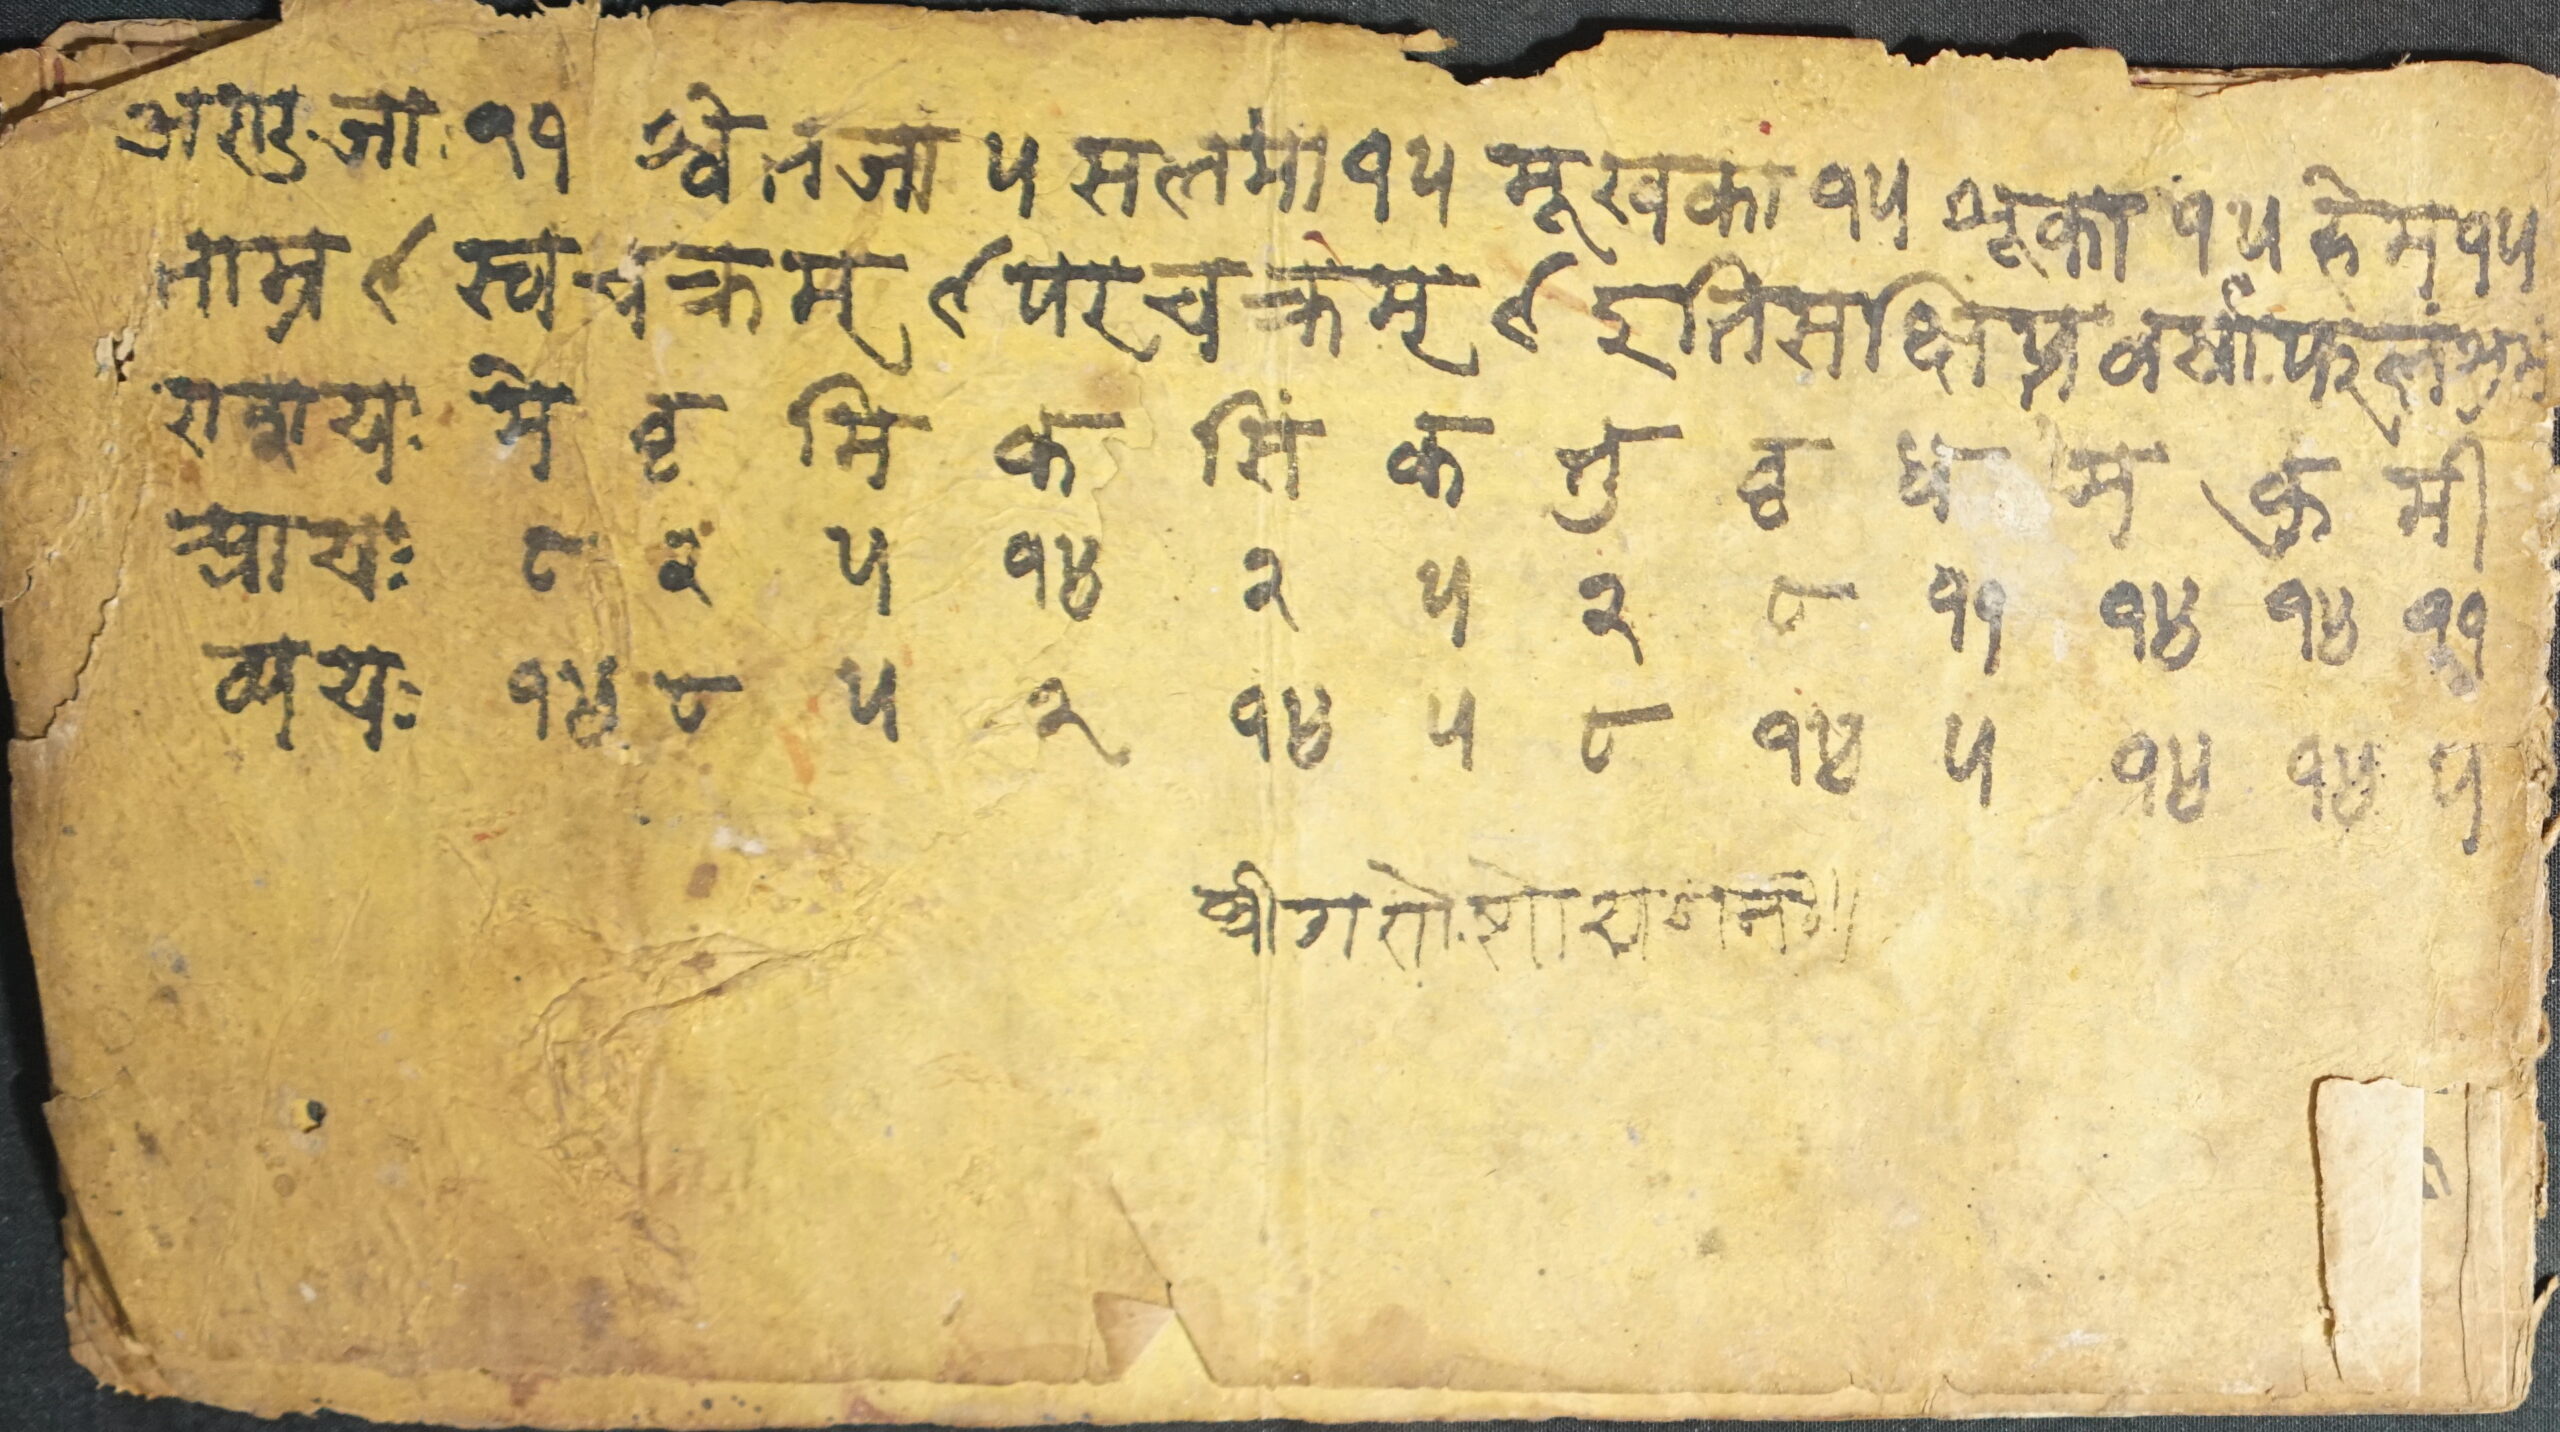 अराडजा ११ श्वेतजा ५ सलमा १५ मूखका १५ शूका १५ हेम १५
ताम्र ९ स्वचक्रम् ९ परचक्रम् ९ इति संक्षिप्त वर्षाफलं
राशयः मे वृ मि क सिं क तु वृ ध म कु मी
आयः ८ २ ५ १४ २ ५ २ ८ ११ १४ १४ ११
व्ययः १४ ८ ५ २ १४ ५ ८ १४ ५ १४ १४ ५